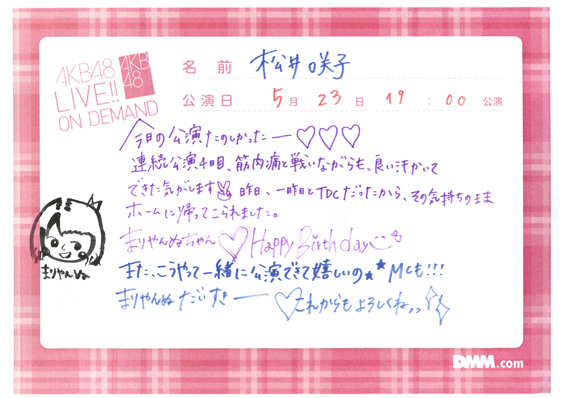 AKB48
LIVE!!
ON DEMAND
AKB
48
名 前 松井咲子
公演日 5月23日 19:00公演
今日の公演たのしかったー♡♡♡
連続公演4日目、筋肉痛と戦いながらも、良い汗かいて
できた気がします✌ 昨日、一昨日とTDCだったから、その気持ちのまま
ホームに帰ってこられました。
まりやんぬちゃん♡Happy Birthday
また、こうやって一緒に公演できて嬉しいの★★ MCも!!!
まりやんぬだいすきー♡これからもよろしくね。。
まりやんぬ
DMM.com